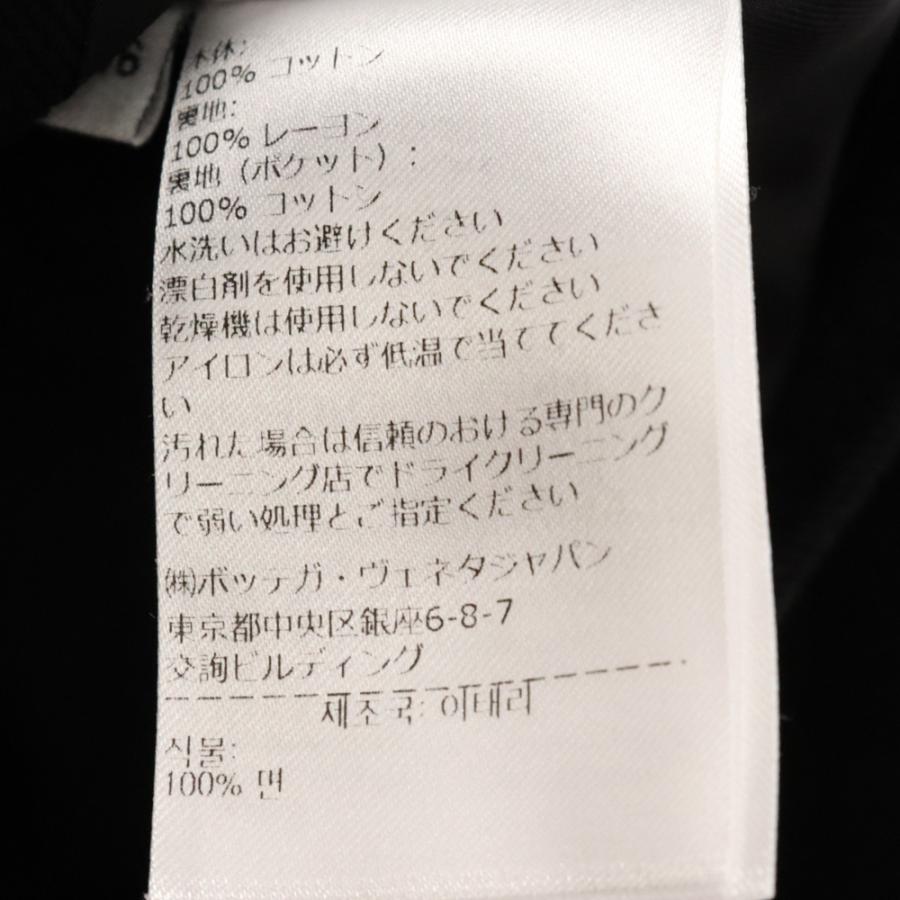 6
本体:
100% コットン
裏地:
100% レーヨン
裏地（ポケット）:
100% コットン
水洗いはお避けください
漂白剤を使用しないでください
乾燥機は使用しないでください
アイロンは必ず低温で当ててくださ
い
汚れた場合は信頼のおける専門のク
リーニング店でドライクリーニング
で弱い処理とご指定ください
㈱ボッテガ・ヴェネタジャパン
東京都中央区銀座6-8-7
交詢ビルディング
제조국: 이태리
식물:
100% 면